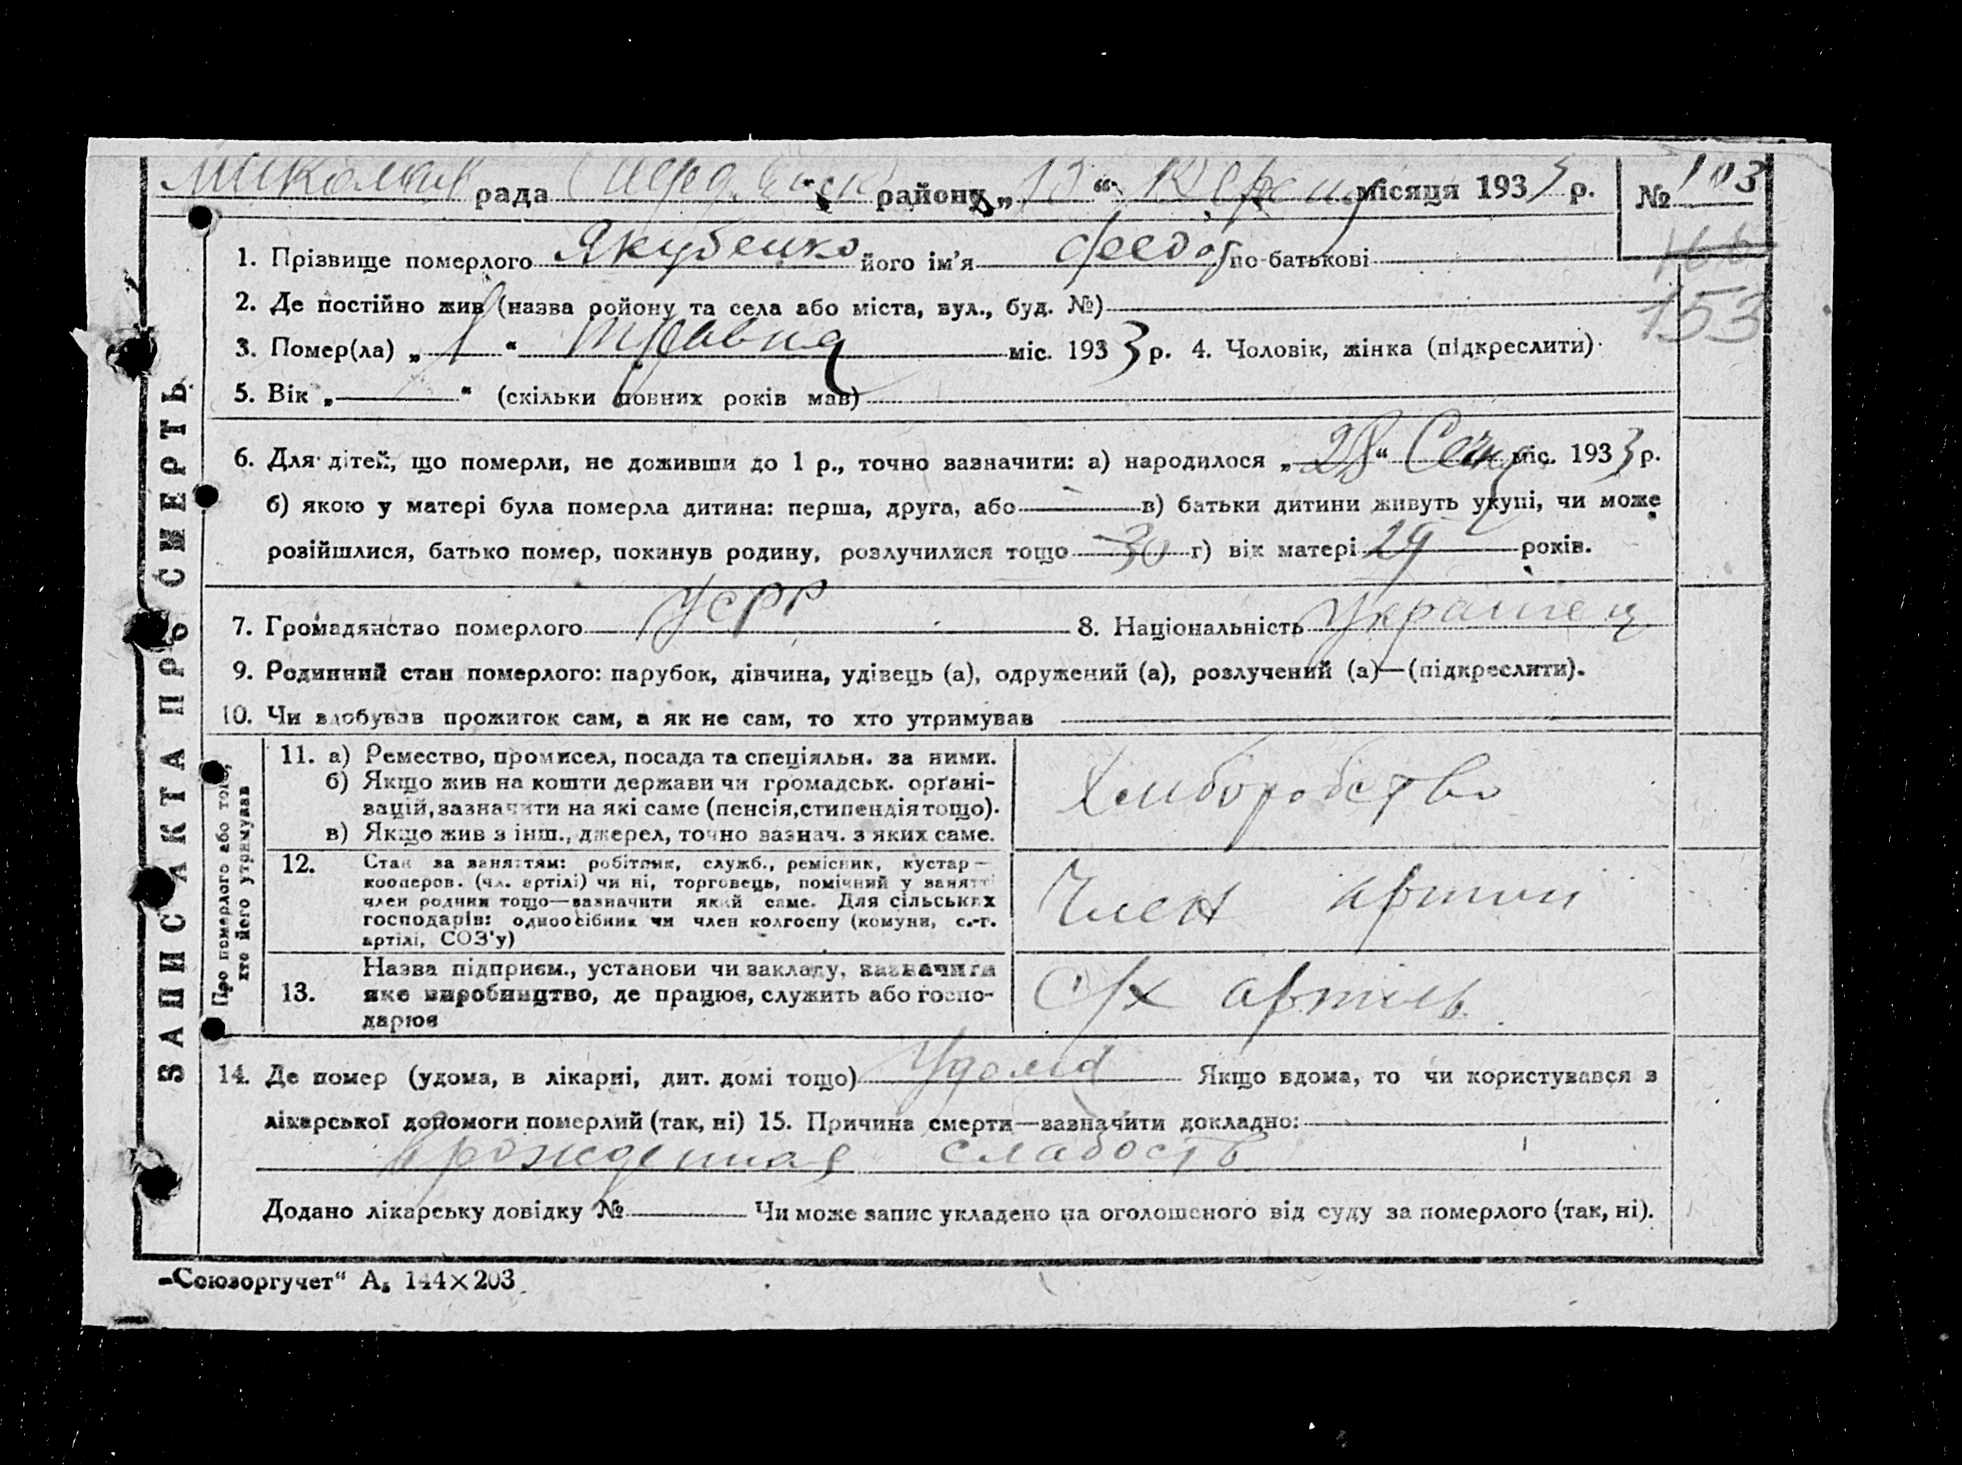 рада району „13“ місяця 1933 р. № 103
153
1. Прізвище померлого Якубенко його ім'я Феедор по-батькові
2. Де постійно жив (назва ройону та села або міста, вул., буд. №)
3. Помер(ла) „1“ травня міс. 1933 р. 4. Чоловік, жінка (підкреслити)
5. Вік „ “ (скільки повних років мав)
6. Для дітей, що померли, не доживши до 1 р., точно зазначити: а) народилося „28“ Січня міс. 1933 р.
б) якою у матері була померла дитина: перша, друга, або в) батьки дитини живуть укупі, чи може
розійшлися, батько помер, покинув родину, розлучилися тощо 30 г) вік матері 29 років.
7. Громадянство померлого УСРР 8. Національність Украинец
9. Родинний стан померлого: парубок, дівчина, удівець (а), одружений (а), розлучений (а)—(підкреслити).
10. Чи здобував прожиток сам, а як не сам, то хто утримував
ЗАПИС АКТА ПРО СМЕРТЬ
Про померлого або того,
хто його утримував
11. а) Ремество, промисел, посада та спеціяльн. за ними.
б) Якщо жив на кошти держави чи громадськ. орґані-
зацій, зазначити на які саме (пенсія, стипендія тощо).
в) Якщо жив з інш., джерел, точно зазнач. з яких саме.
Хлиборобство
12. Стан за заняттям: робітник, служб., ремісник, кустар—
кооперов. (чл. артілі) чи ні, торговець, помічний у занятті
член родини тощо—зазначити який саме. Для сільських
господарів: одноосібник чи член колгоспу (комуни, с.-г.
артілі, СОЗ'у)
Член артили
13. Назва підприєм., установи чи закладу, зазначити
яке виробництво, де працює, служить або госпо-
дарює
С/х артиль
14. Де помер (удома, в лікарні, дит. домі тощо) Удома Якщо вдома, то чи користувався з
лікарської допомоги померлий (так, ні) 15. Причина смерти—зазначити докладно:
врожденная слабость
Додано лікарську довідку № Чи може запис укладено на оголошеного від суду за померлого (так, ні).
„Союзоргучет“ А₅ 144×203